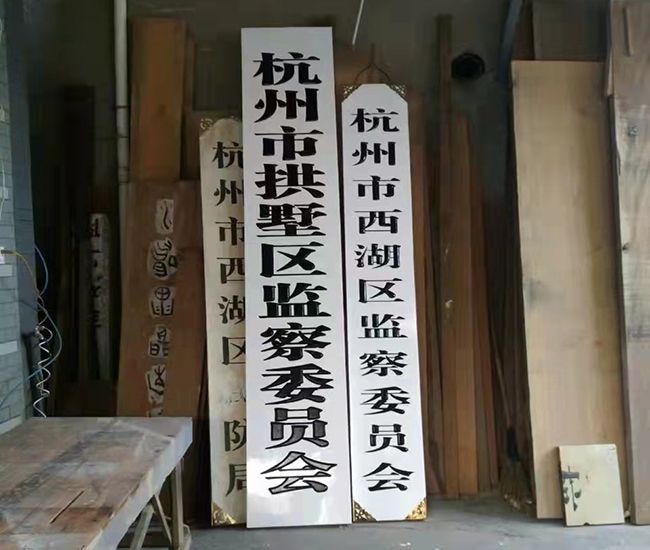 杭州市拱墅区监察委员会
杭州市西湖区监察委员会
杭州市西湖区防局